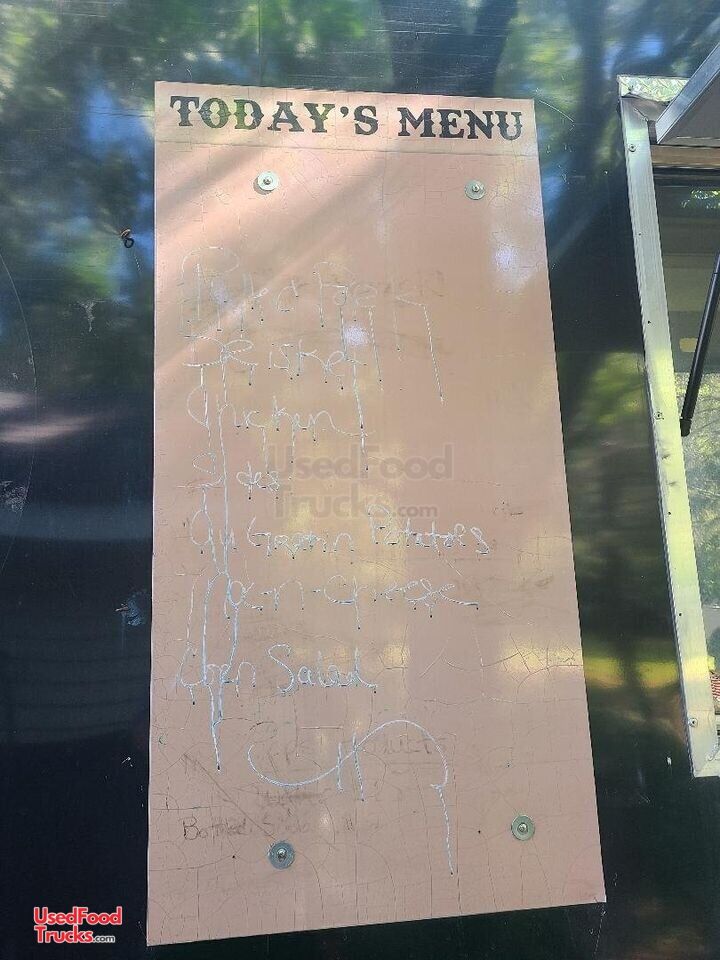 TODAY'S MENU
Pulled Pork
Brisket
Chicken
Sides
Au Gratin Potatoes
Mac-n-cheese
Corn Salad
UsedFood
Trucks.com
UsedFood
Trucks.com